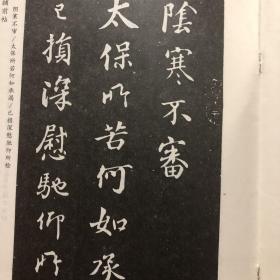 陰寒不審
太保所苦何如承
已損深慰馳仰所
陰寒不審/太保所苦何如承渴/已損深慰馳仰所檢